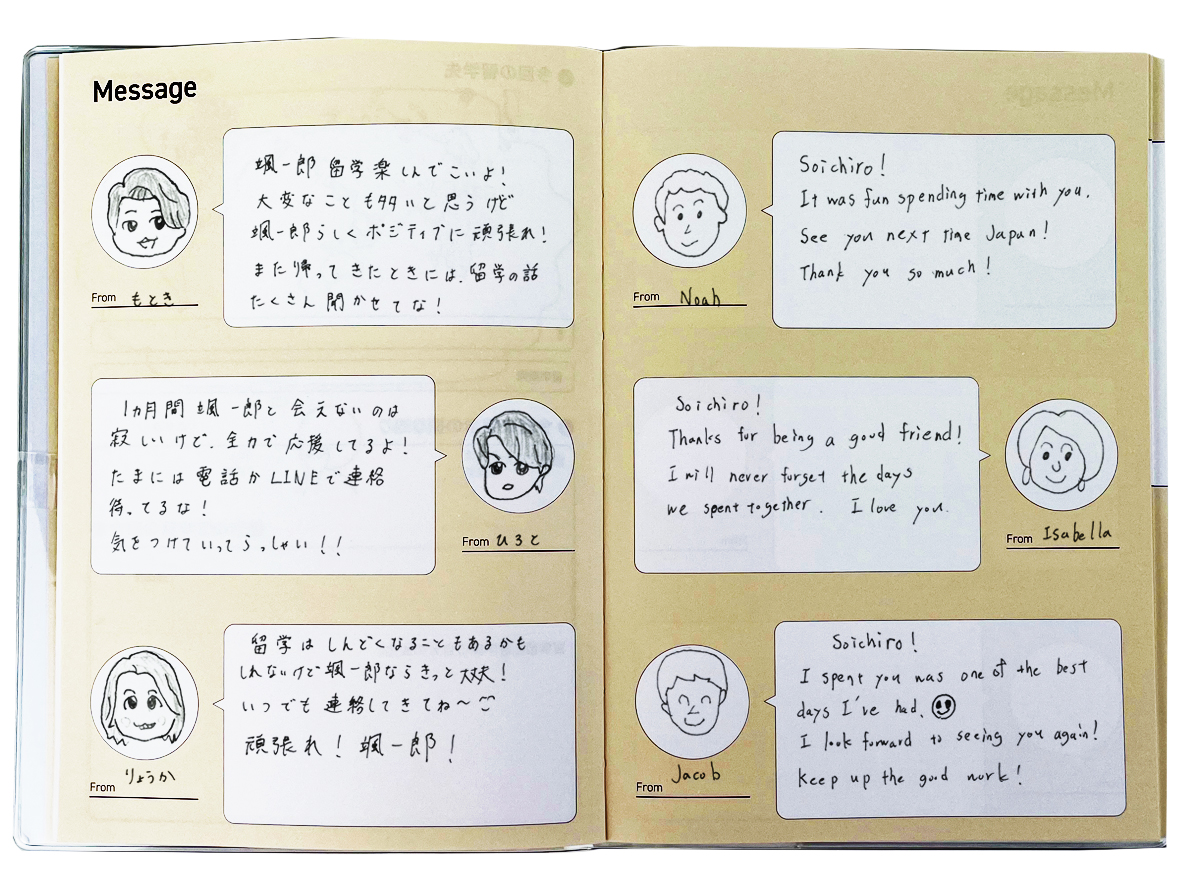 Message
颯一郎 留学楽しんでこいよ！
大変なことも多いと思うけど
颯一郎らしくポジティブに頑張れ！
また帰ってきたときには、留学の話
たくさん聞かせてな！
From もとき
1ヵ月間 颯一郎と会えないのは
寂しいけど、全力で応援してるよ！
たまには電話かLINEで連絡
待ってるな！
気をつけていってらっしゃい！！
From ひろと
留学はしんどくなることもあるかも
しれないけど颯一郎ならきっと大丈夫！
いつでも連絡してきてね〜
頑張れ！颯一郎！
From りょうか
Soichiro!
It was fun spending time with you.
See you next time Japan!
Thank you so much!
From Noah
Soichiro!
Thanks for being a good friend!
I will never forget the days
we spent together. I love you.
From Isabella
Soichiro!
I spent you was one of the best
days I've had.
I look forward to seeing you again!
Keep up the good work!
From Jacob